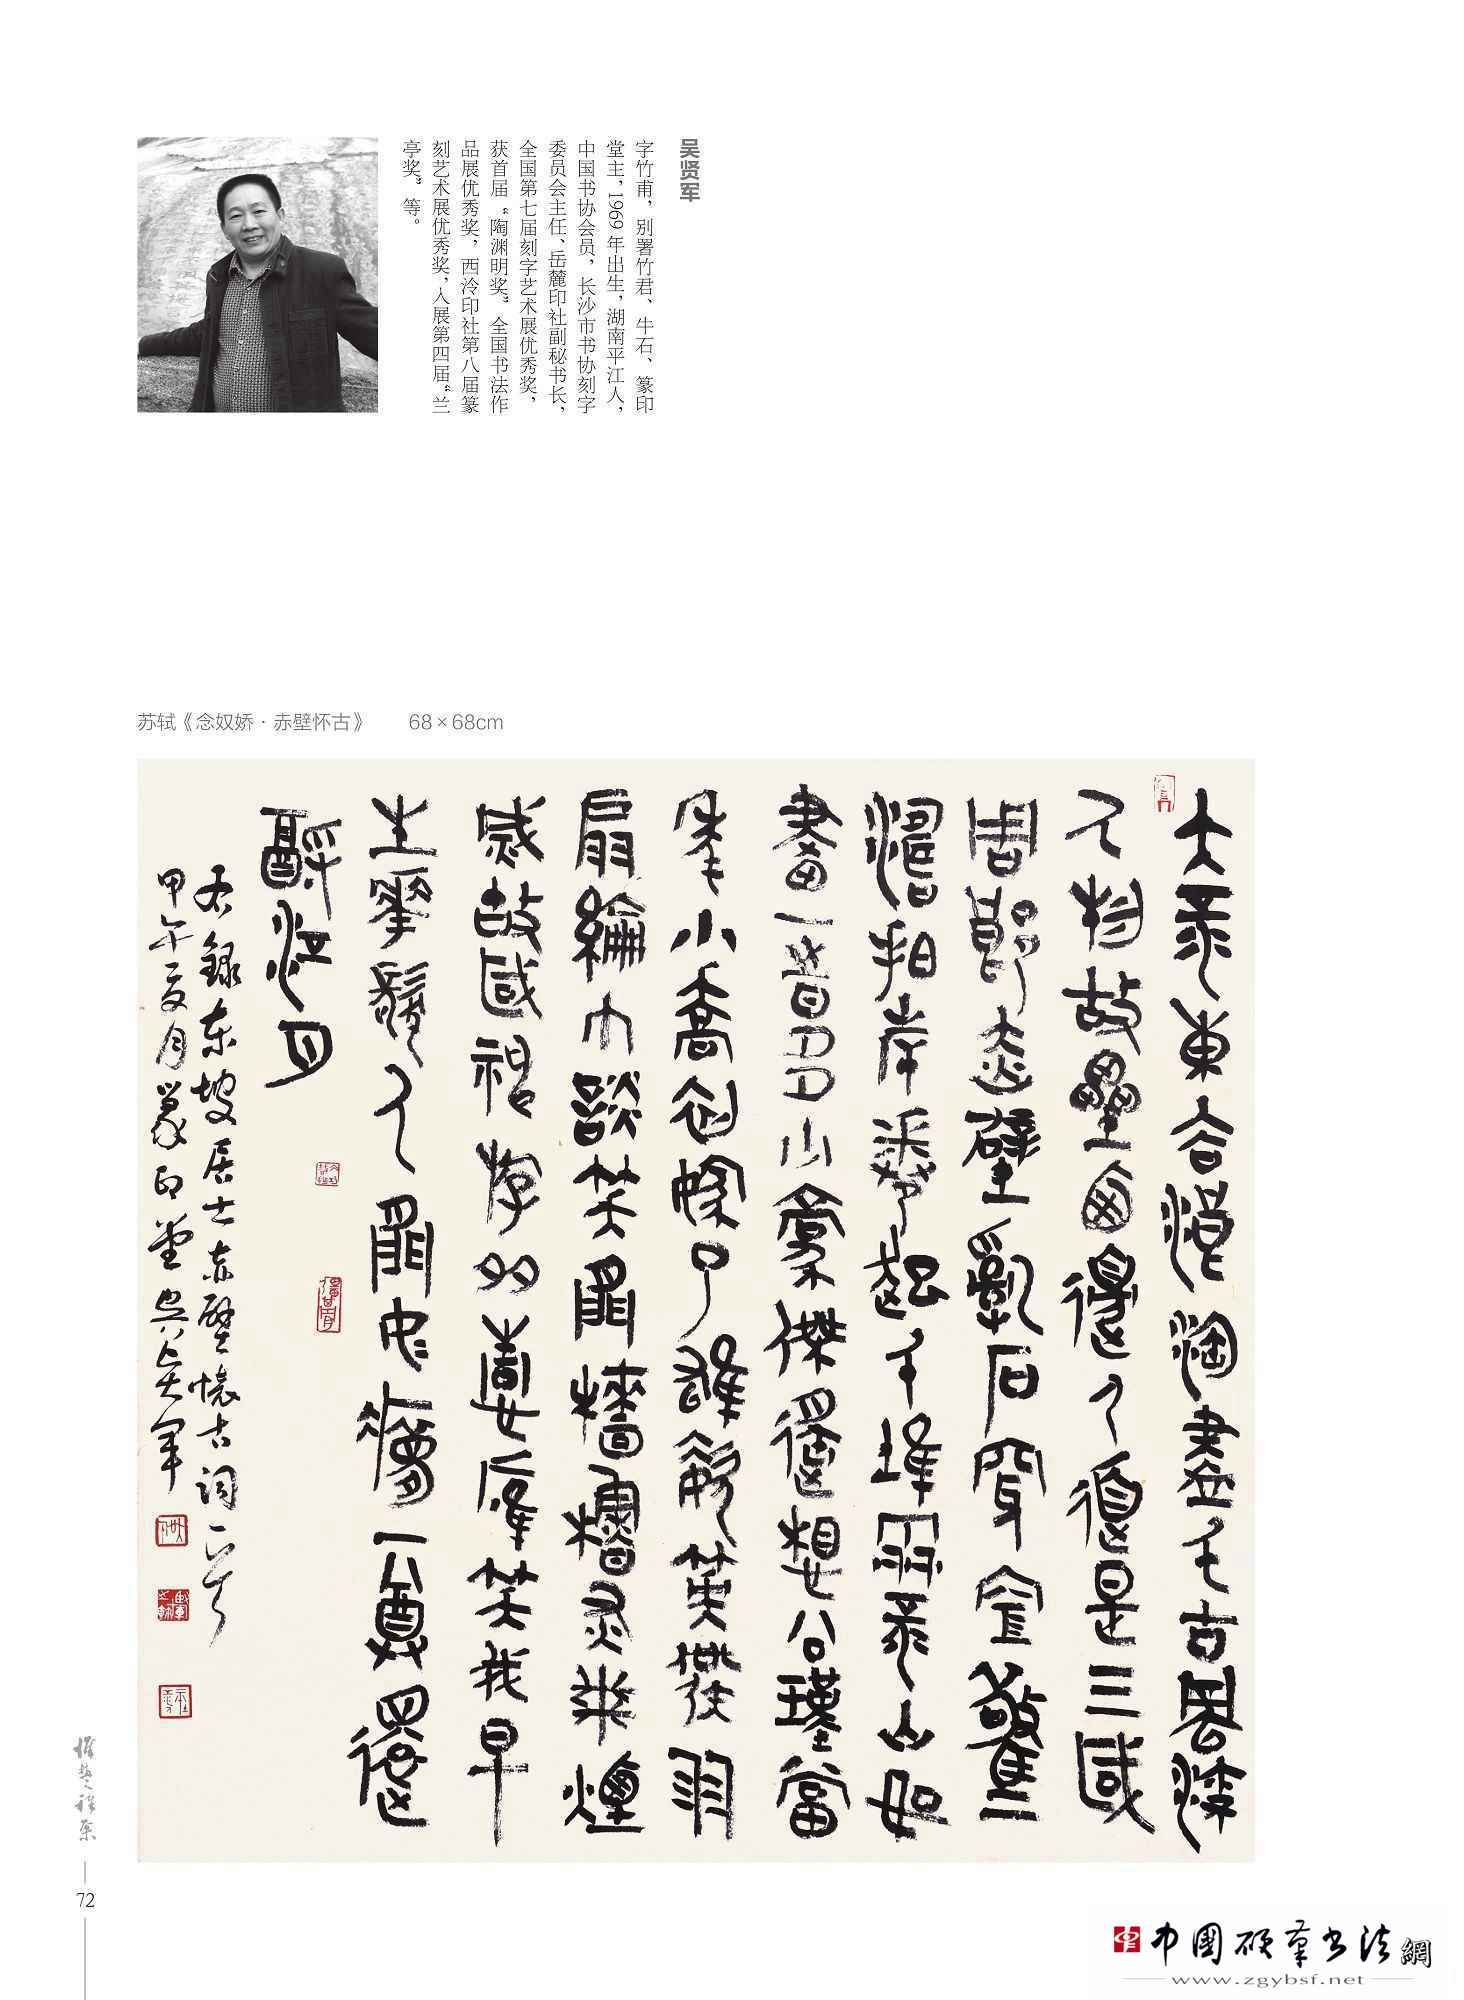 吴贤军
字竹甫，别署竹君、牛石、篆印
堂主，1969年出生，湖南平江人，
中国书协会员，长沙市书协刻字
委员会主任、岳麓印社副秘书长，
全国第七届刻字艺术展优秀奖，
获首届“陶渊明奖”全国书法作
品展优秀奖，西泠印社第八届篆
刻艺术展优秀奖，入展第四届“兰
亭奖”等。
苏轼《念奴娇·赤壁怀古》 68×68cm
大江東去浪淘盡千古風流
人物故壘西邊人道是三國
周郎赤壁亂石穿空驚
濤拍岸捲起千堆雪江山如
畫一時多少山豪傑遙想公瑾當
年小喬初嫁了雄姿英發羽
扇綸巾談笑間檣櫓灰飛煙
滅故國神游多情應笑我早
生華髮人間如夢一尊還
酹江月
右錄东坡居士赤壁懷古詞一首
甲午夏月篆印堂吳賢軍
72
中国硬笔书法網
www.zgybsf.net